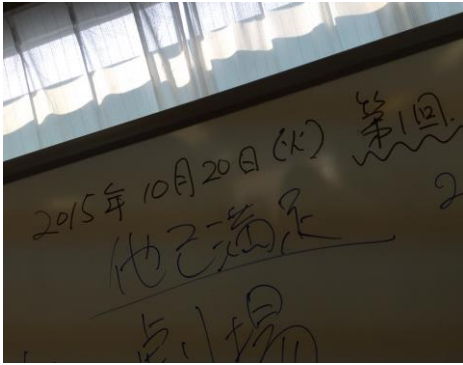 2015年10月20日(火) 第1回.
2
他己満足
劇場